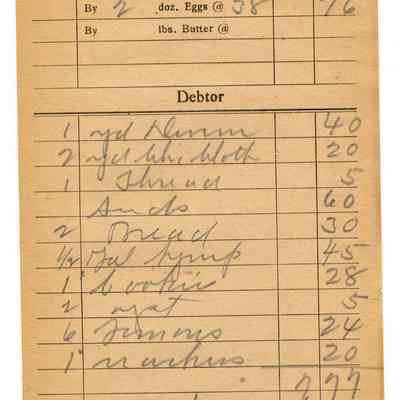 By 2 doz. Eggs @ 38 76
By lbs. Butter @
Debtor
1 yd Denim 40
2 yd Wh. Cloth 20
1 Thread 5
60
2 Bread 30
1/2 Gal 45
1 Cookie 28
2 5
6 Lemons 24
1 20